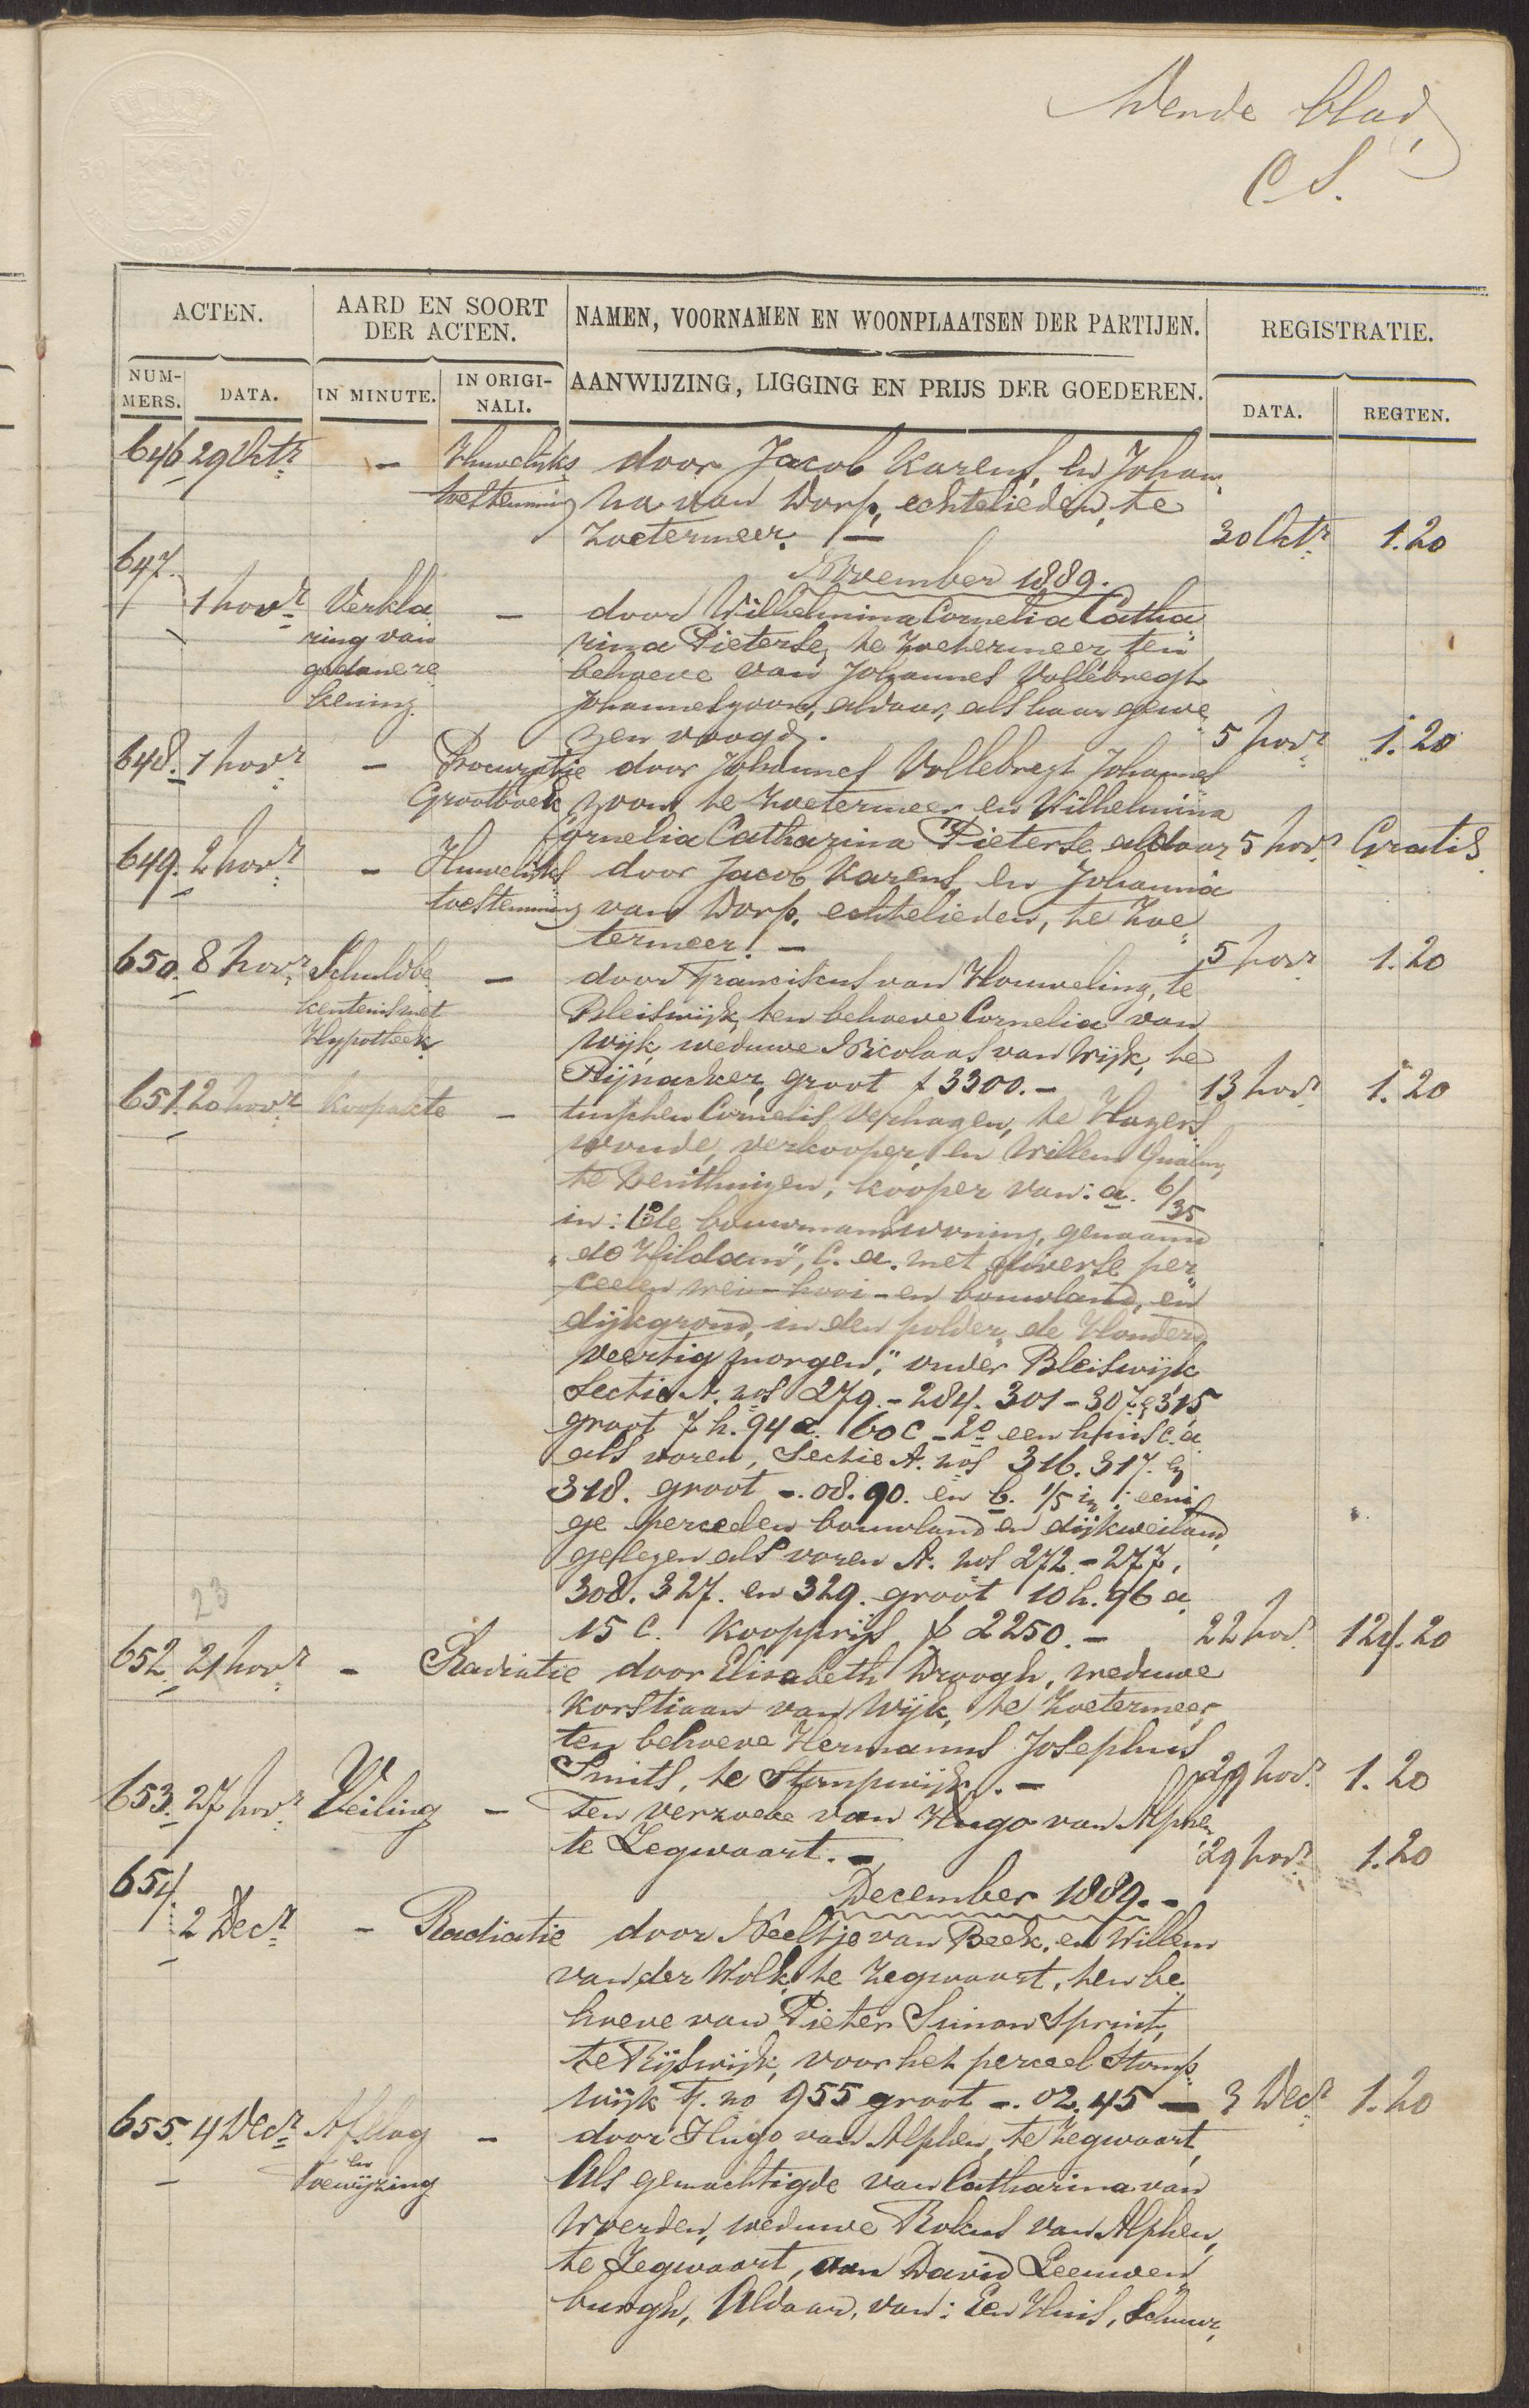 blad,
C S.
ACTEN.
AARD EN SOORT
DER ACTEN.
NAMEN, VOORNAMEN EN WOONPLAATSEN DER PARTIJEN.
REGISTRATIE.
NUM-
MERS.
DATA.
IN MINUTE.
IN ORIGI-
NALI.
AANWIJZING, LIGGING EN PRIJS DER GOEDEREN.
DATA.
REGTEN.
646 29 Octr. - Huwelijks door Jacob Karens, en Johan„
toestemming na van Dorp, echtelieden, te
Zoetermeer. - 30 Octr. 1.20
647.
November 1889.
1 novr. Verkla - door Wilhelmina Cornelia Catha
ring van rina Pieterse, te Zoetermeer, ten
gedane re behoeve van Johannes Vollebregt
kening. Johanneszoon, aldaar, als haar gewe„
zen voogd. 5 novr. 1.20
648. 1 novr. - Procuratie door Johannes Vollebregt Johannes
Grootboek zoon, te Zoetermeer en Wilhelmina
Cornelia Catharina Pieterse aldaar 5 novr. Gratis
649. 2 novr. - Huwelijks door Jacob Karens, en Johanna
toestemming van Dorp, echtelieden, te Zoe„
termeer. - 5 novr. 1.20
650. 8 novr. Schuldbe - door Franciskus van Houweling, te
kentenis met Bleiswijk, ten behoeve Cornelia van
Hypotheek. Wijk, weduwe Nicolaas van Wijk, te
Pijnacker, groot f 3300.- 13 novr. 1.20
651. 20 novr. Koopakte - tusschen Cornelis Verhagen, te Hazers
woude, verkooper, en Willem
te Benthuizen, kooper van: a. 6/35
in: 1o de bouwmanswoning, genaamd
„de Wildam", c. a. met diverse per„
ceelen wei- hooi- en bouwland, en
dijkgrond, in den polder „de Honderd
veertig morgen," onder Bleiswijk
Sectie A. nos 279.-284. 301-307 & 315
groot 7 h. 94 a. 60 c - 2o een huis c. a
als voren, Sectie A. nos 316. 317. en
318. groot -. 08. 90. en b. 1/5 in: eeni„
ge perceelen bouwland en dijkweiland,
gelegen als voren A. nos 272.-277,
308. 327. en 329. groot 10 h. 96 a
23
15 c. Koopprijs f 2250.- 22 novr. 124.20
652. 21 novr. - Radiatie door Elisabeth Droogh, weduwe
Korstiaan van Wijk, te Zoetermeer,
ten behoeve Hermanus Josephus
Smits, te Stompwijk. - 29 novr. 1.20
653. 27 novr. Veiling - Ten verzoeke van Hugo van Alphen
te Zegwaart. - 29 novr. 1.20
654.
December 1889.-
2 Decr. - Radiatie door Neeltje van Beek, en Willem
van der Wolk, te Zegwaart, ten be„
hoeve van Pieter Simon Spruit,
te Rijswijk, voor het perceel Stomp„
wijk F. no 955 groot -. 02. 45 - 3 Decr. 1.20
655. 4 Decr. Afslag - door Hugo van Alphen, te Zegwaart,
en
Toewijzing Als gemachtigde van Catharina van
Woerden, weduwe Rokus van Alphen,
te Zegwaart, aan David Leeuwen„
burgh, Aldaar, van: Een Huis, schuur,